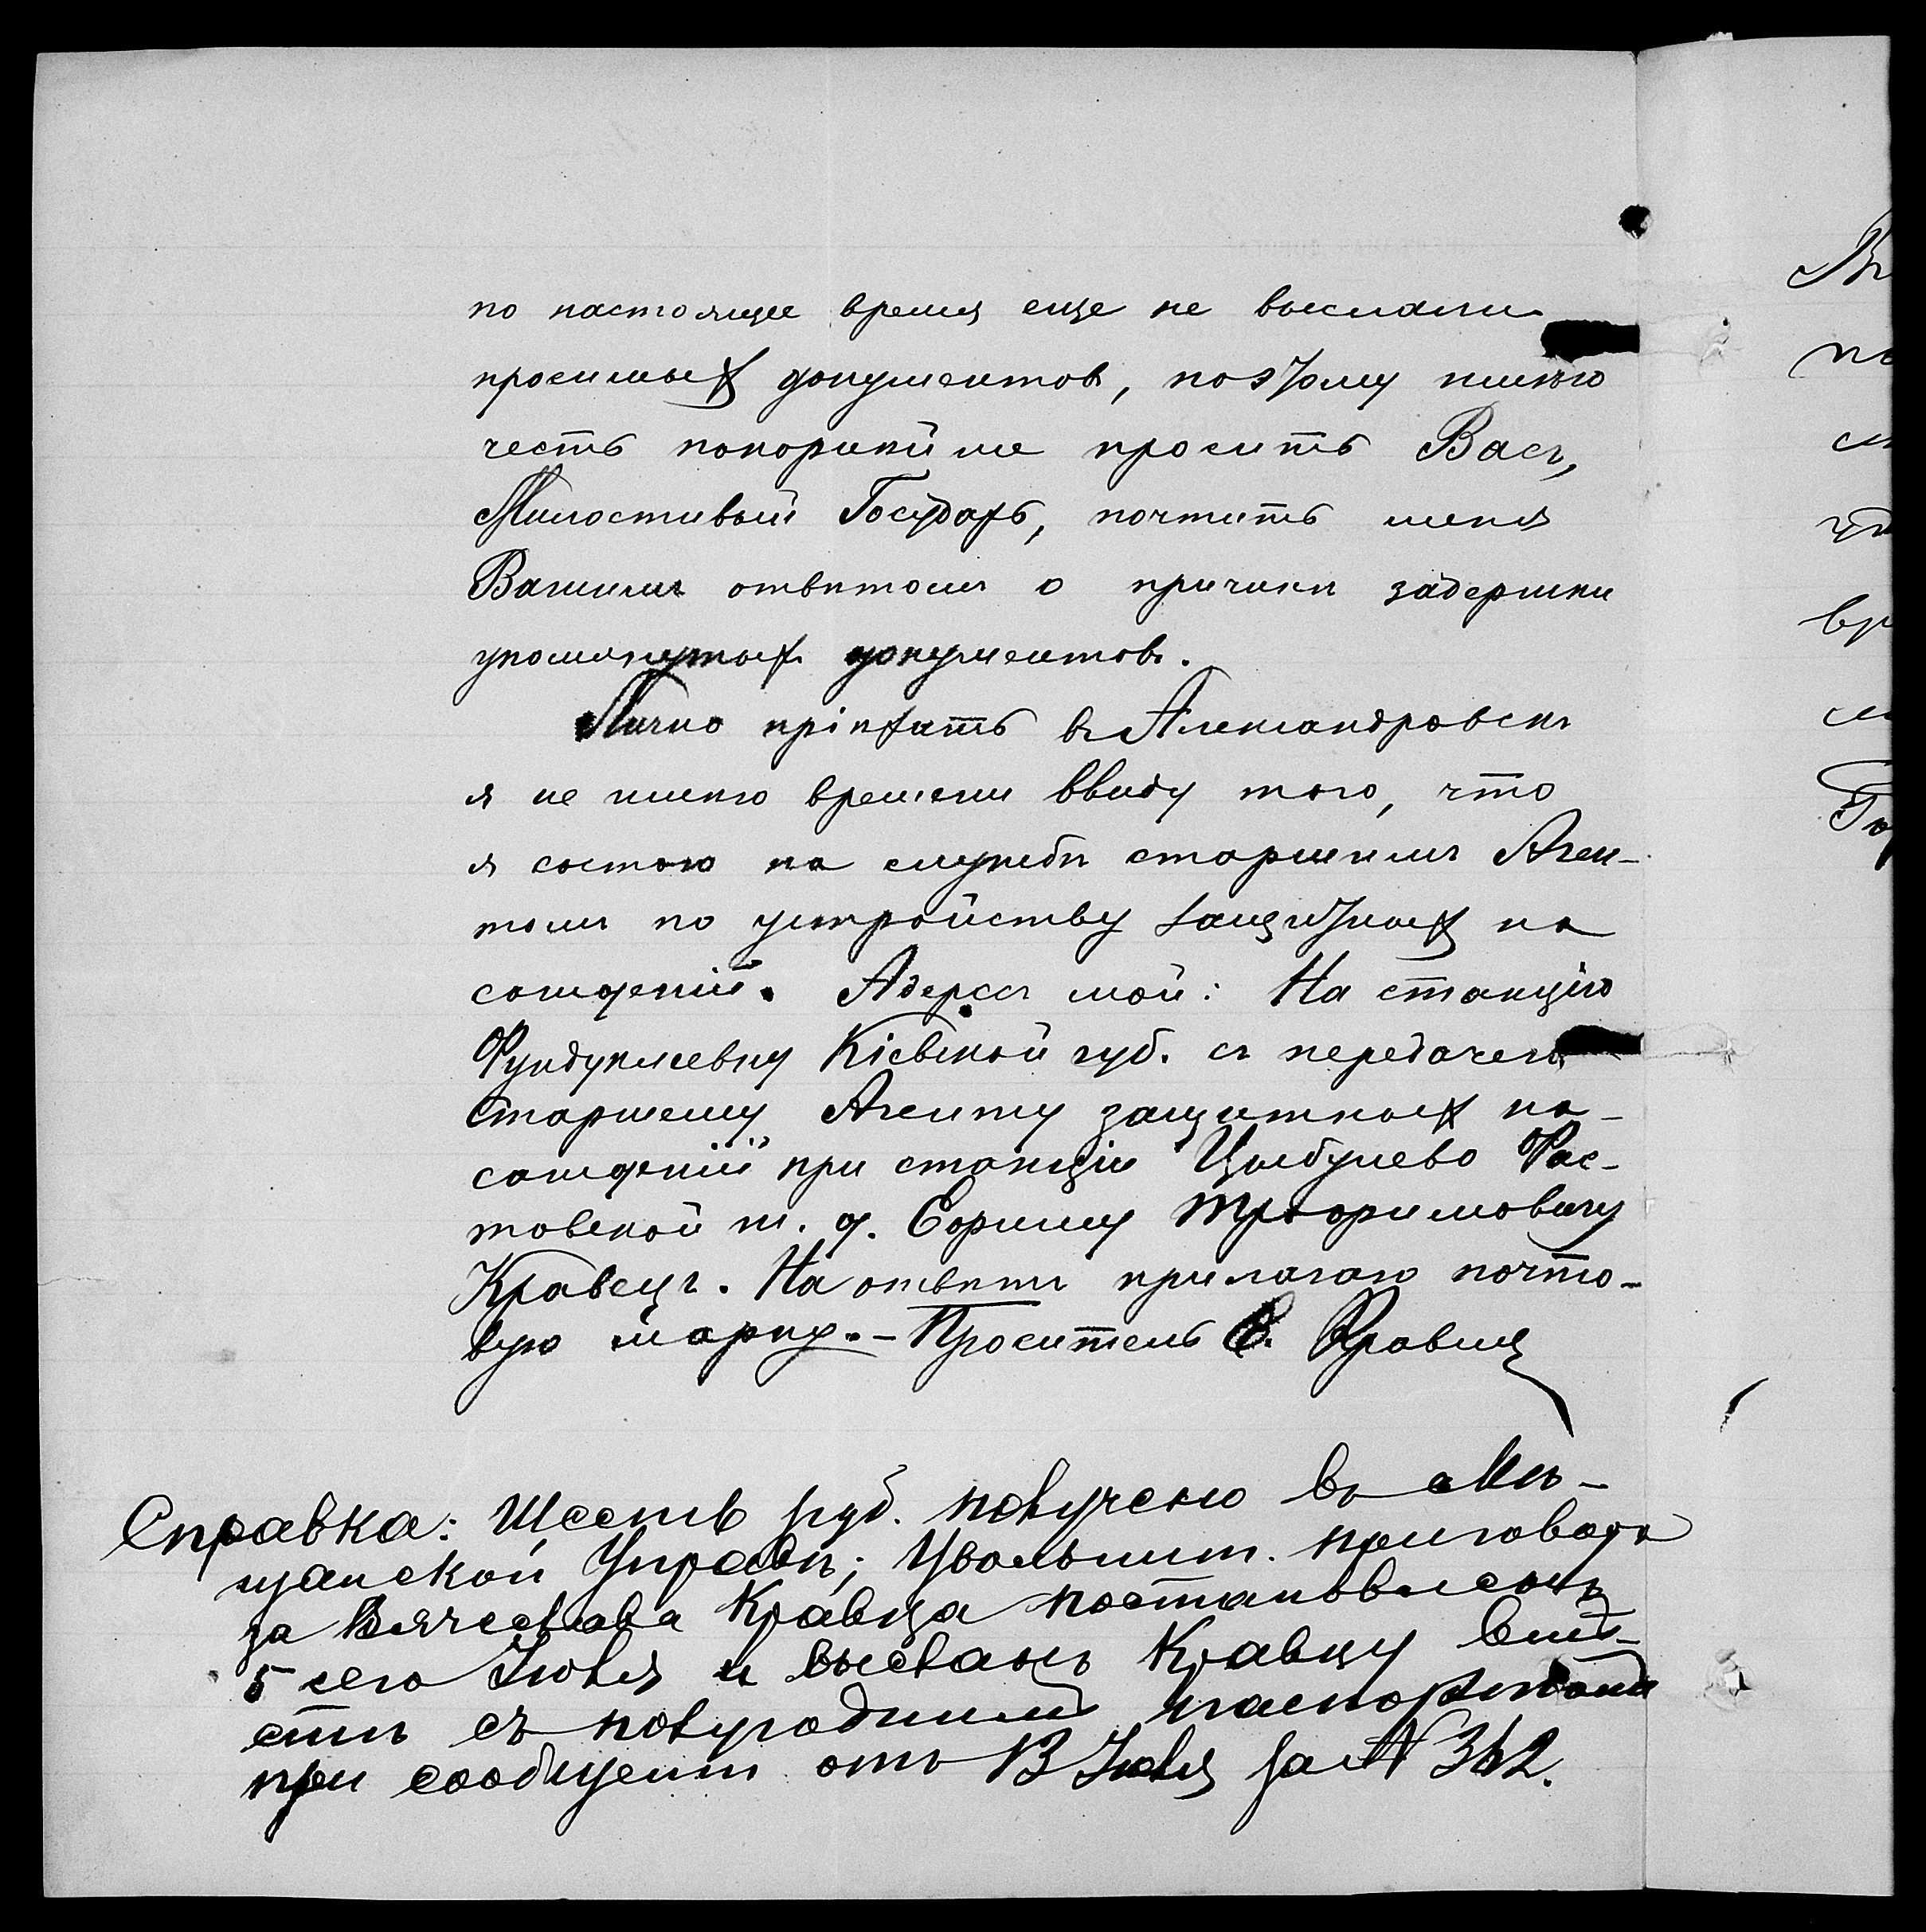 по настоящее время еще не выслали
просимых документов, поэтому имѣю
честь покорнѣйше просить Васъ,
Милостивый Государь, почтить меня
Вашимъ отвѣтомъ о причинѣ задержки
упомянутых документовъ.
Лично пріѣхать въ Александровскъ
я не имѣю времени ввиду того, что
я состою на службѣ старшимъ Аген-
томъ по устройству защитных на
сажденій. Адерсъ мой: На станцію
Фундуклеевку Кіевской губ. съ передачею
Старшему Агенту защитных на-
сажденій при станціи Цыбулево Фас-
товской ж. д. Ефиму Трофимовичу
Кравецъ. На отвѣтъ прилагаю почто-
вую марку. - Проситель Е. Кравец
Справка: Шесть руб. получено въ Мѣ-
щанской Управѣ; Увольнит. приговоръ
за Вячеслава Кравца постановленъ
5 сего Июля и высланъ Кравцу вмѣ-
стѣ съ полугодичным паспортомъ
при сообщении отъ 13 Июля за № 342.
Ва
по
см
чт
вр
см
Го